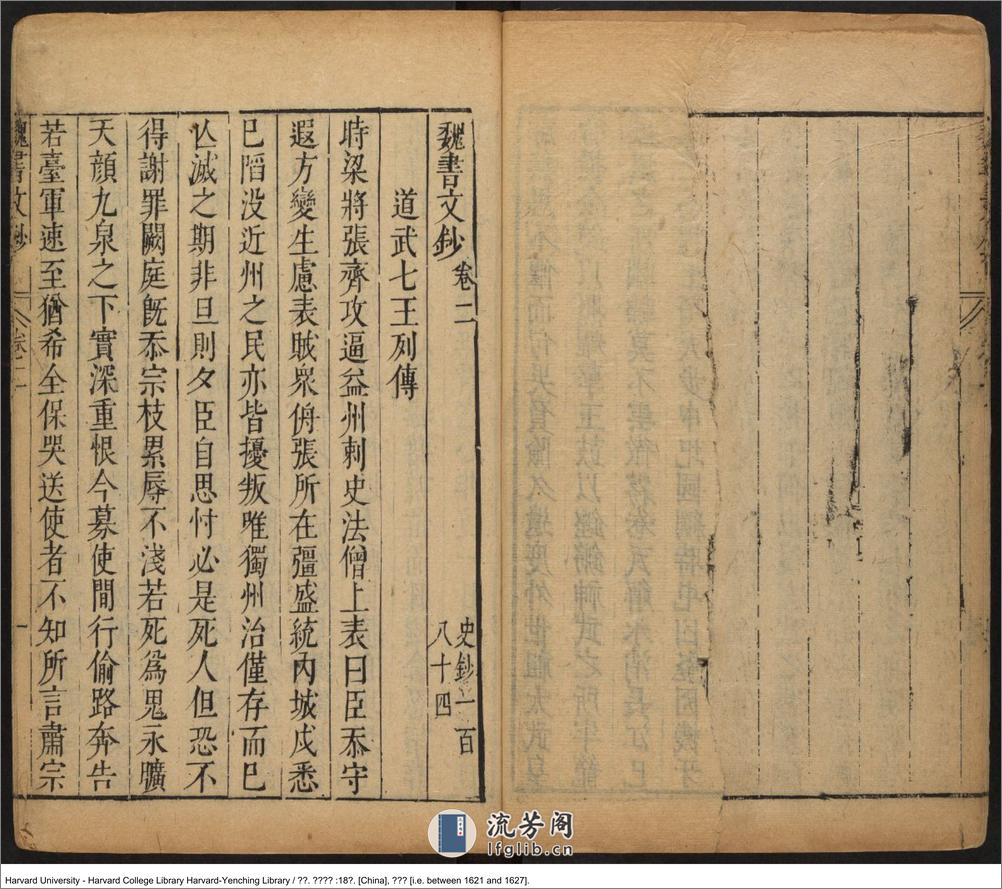 魏書文鈔卷二
史鈔一百八十四
道武七王列傳
時梁將張齊攻逼益州刺史法僧上表曰臣忝守
遐方變生慮表賊衆侜張所在彊盛統內城戍悉
已陷没近州之民亦皆擾叛唯獨州治僅存而已
亾滅之期非旦則夕臣自思忖必是死人但恐不
得謝罪闕庭旣忝宗枝累辱不淺若死爲鬼永曠
天顔九泉之下實深重恨今募使間行偷路奔告
若臺軍速至猶希全保哭送使者不知所言肅宗
魏書文鈔
卷二
一
流芳阁
lfglib.cn
Harvard University - Harvard College Library Harvard-Yenching Library / ??. ???? :18?. [China], ??? [i.e. between 1621 and 1627].